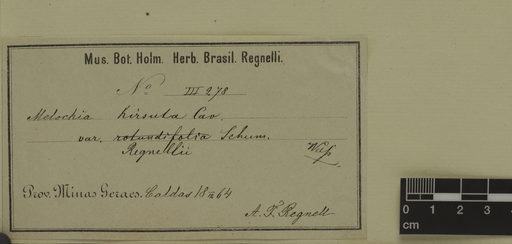 Mus. Bot. Holm. Herb. Brasil. Regnelli.
No III 278
Melochia hirsuta Cav.
var. rotundifolia Schum.
Regnellii
Prov. Minas Geraes. Caldas 18 64
A. F. Regnell
0 1 2 3
cm